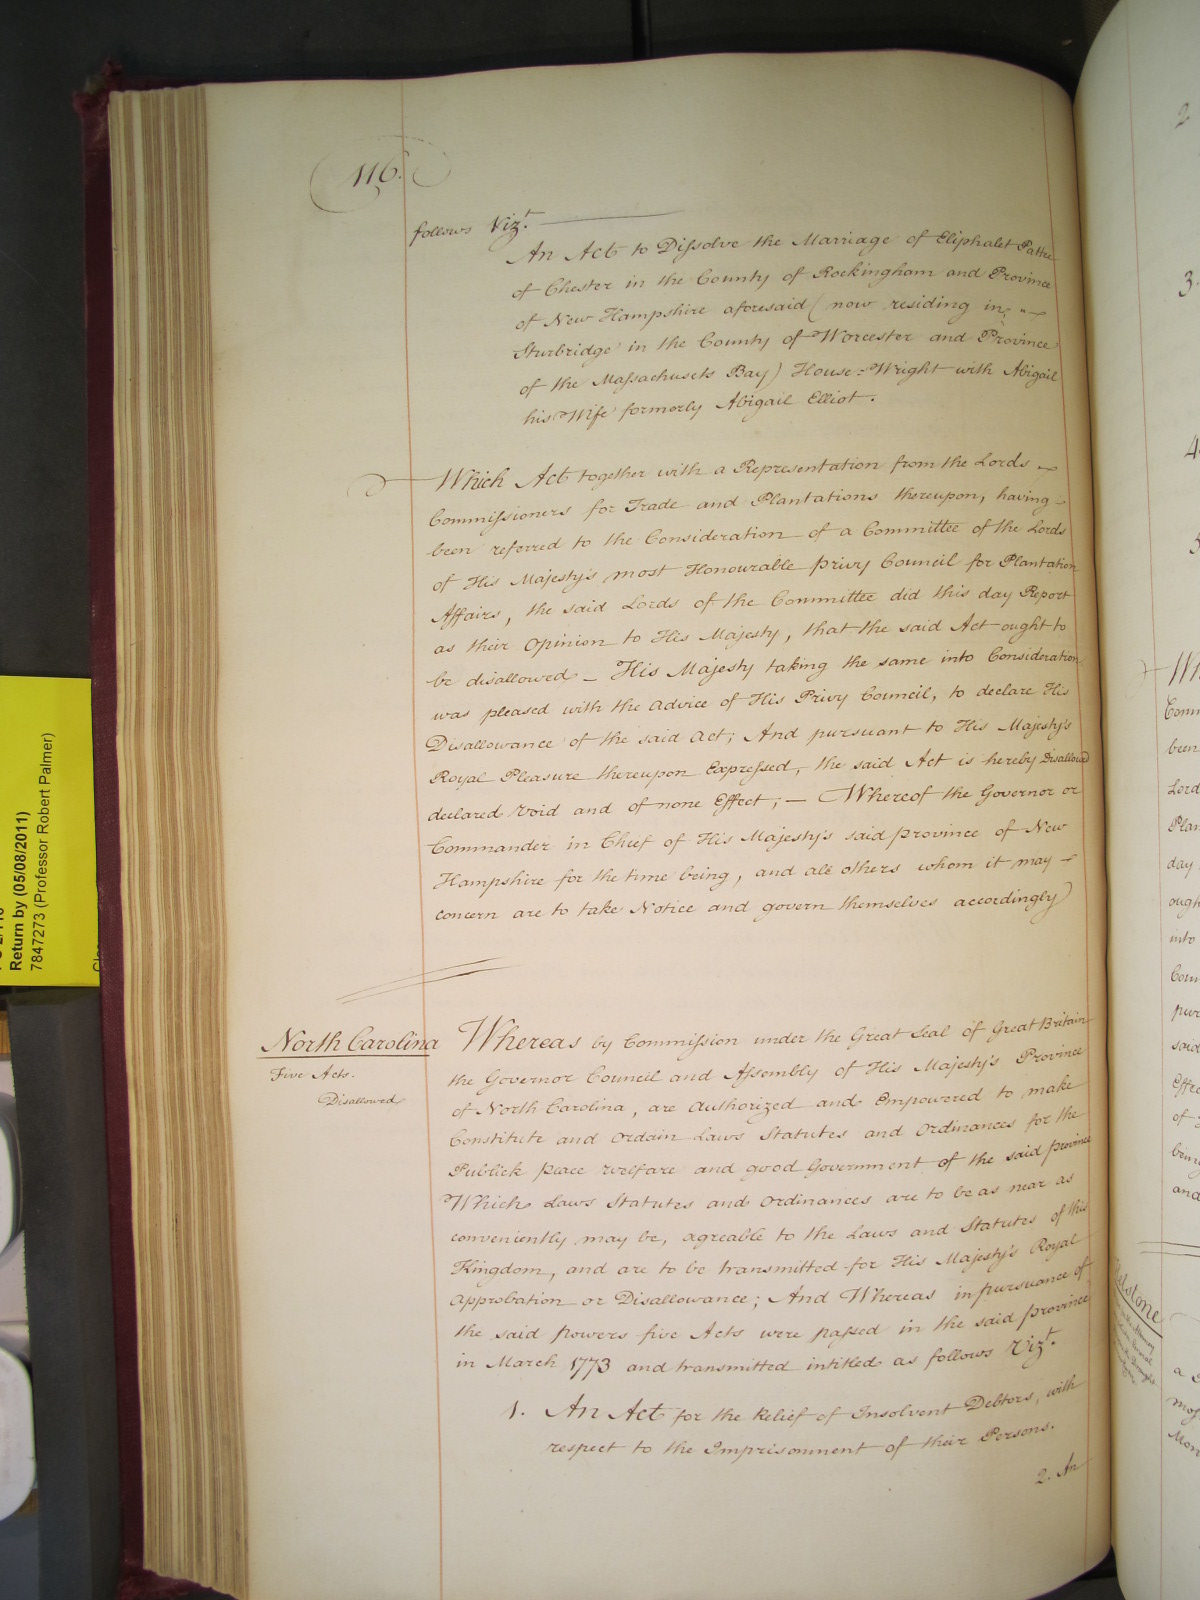 116.
follows Vizt.
An Act to Dissolve the Marriage of Eliphalet
of Chester in the County of Rockingham and Province
of New Hampshire aforesaid (now residing in
Sturbridge in the County of Worcester and Province
of the Massachusets Bay) House=Wright with Abigail
his Wife formerly Abigail Elliot.
Which Act together with a Representation from the Lords
Commissioners for Trade and Plantations thereupon, having
been referred to the Consideration of a Committee of the Lords
of His Majesty's most Honourable privy Council for Plantation
Affairs, the said Lords of the Committee did this day Report
as their Opinion to His Majesty, that the said Act ought to
be disallowed – His Majesty taking the same into Consideration
was pleased with the Advice of His Privy Council, to declare His
Disallowance of the said Act; And pursuant to His Majesty's
Royal Pleasure thereupon Expressed, the said Act is hereby Disallowed
declared Void and of none Effect; – Whereof the Governor or
Commander in Chief of His Majesty's said province of New
Hampshire for the time being, and all others whom it may
concern are to take Notice and govern themselves accordingly
North Carolina
Five Acts.
Disallowed
Whereas by Commission under the Great Seal of Great Britain
the Governor Council and Assembly of His Majesty's Province
of North Carolina, are Authorized and Empowered to make
Constitute and Ordain Laws Statutes and Ordinances for the
Publick peace welfare and good Government of the said province
Which Laws Statutes and Ordinances are to be as near as
conveniently may be, agreable to the Laws and Statutes of this
Kingdom, and are to be transmitted for His Majesty's Royal
Approbation or Disallowance; And Whereas in pursuance of
the said powers five Acts were passed in the said province
in March 1773 and transmitted intitled as follows Vizt.
1. An Act for the Relief of Insolvent Debtors, with
respect to the Imprisonment of their Persons.
2. An
Return by (05/08/2011)
7847273 (Professor Robert Palmer)
2
3.
4
5
been
Lord
Plan
day
ough
into
Coun
pur
said
Effe
of
being
and